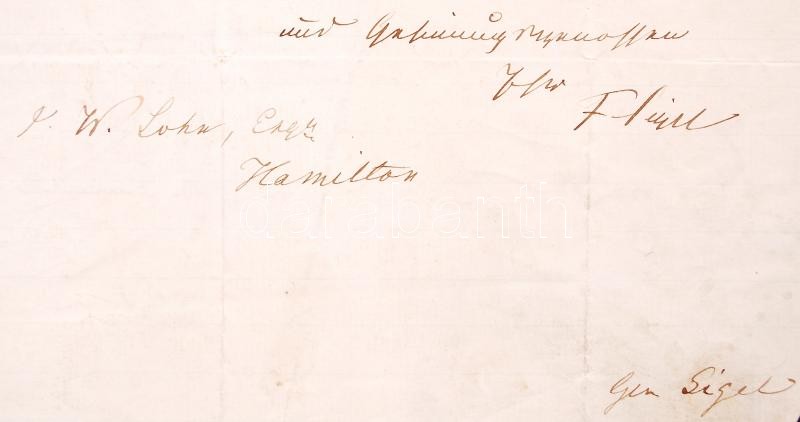 und Gesinnungsgenossen
Ihr
F Sigel
W. Sohn, Esqu.
Hamilton
darabanth
Gen Sigel